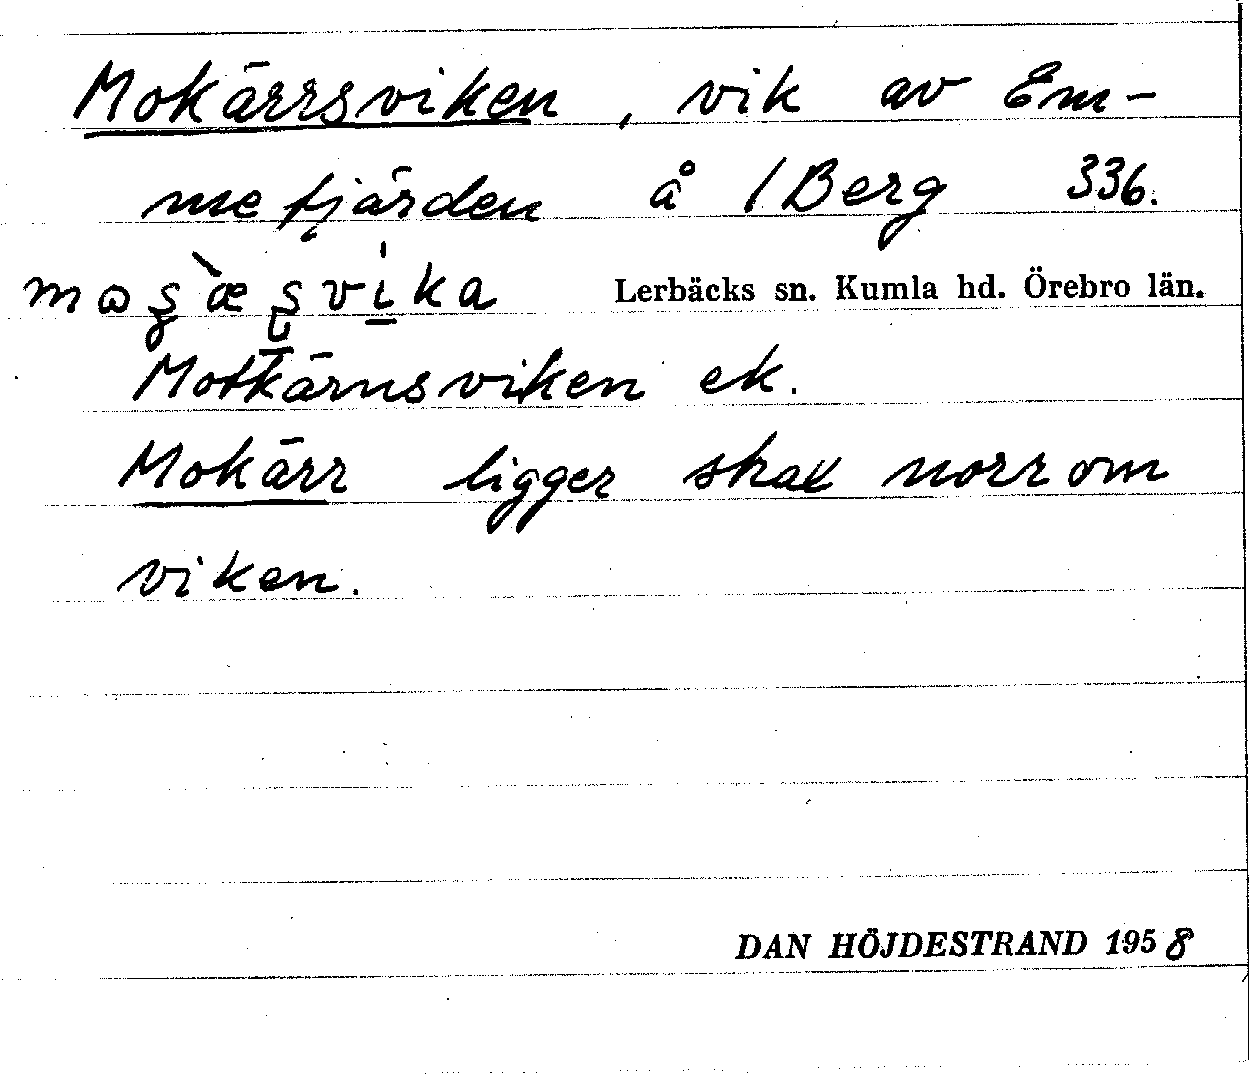 Mokärrsviken, vik av Em-
mefjärden å 1 Berg 336.
Lerbäcks sn. Kumla hd. Örebro län.
Motkärnsviken ek.
Mokärr ligger strax norr om
viken.
DAN HÖJDESTRAND 1958